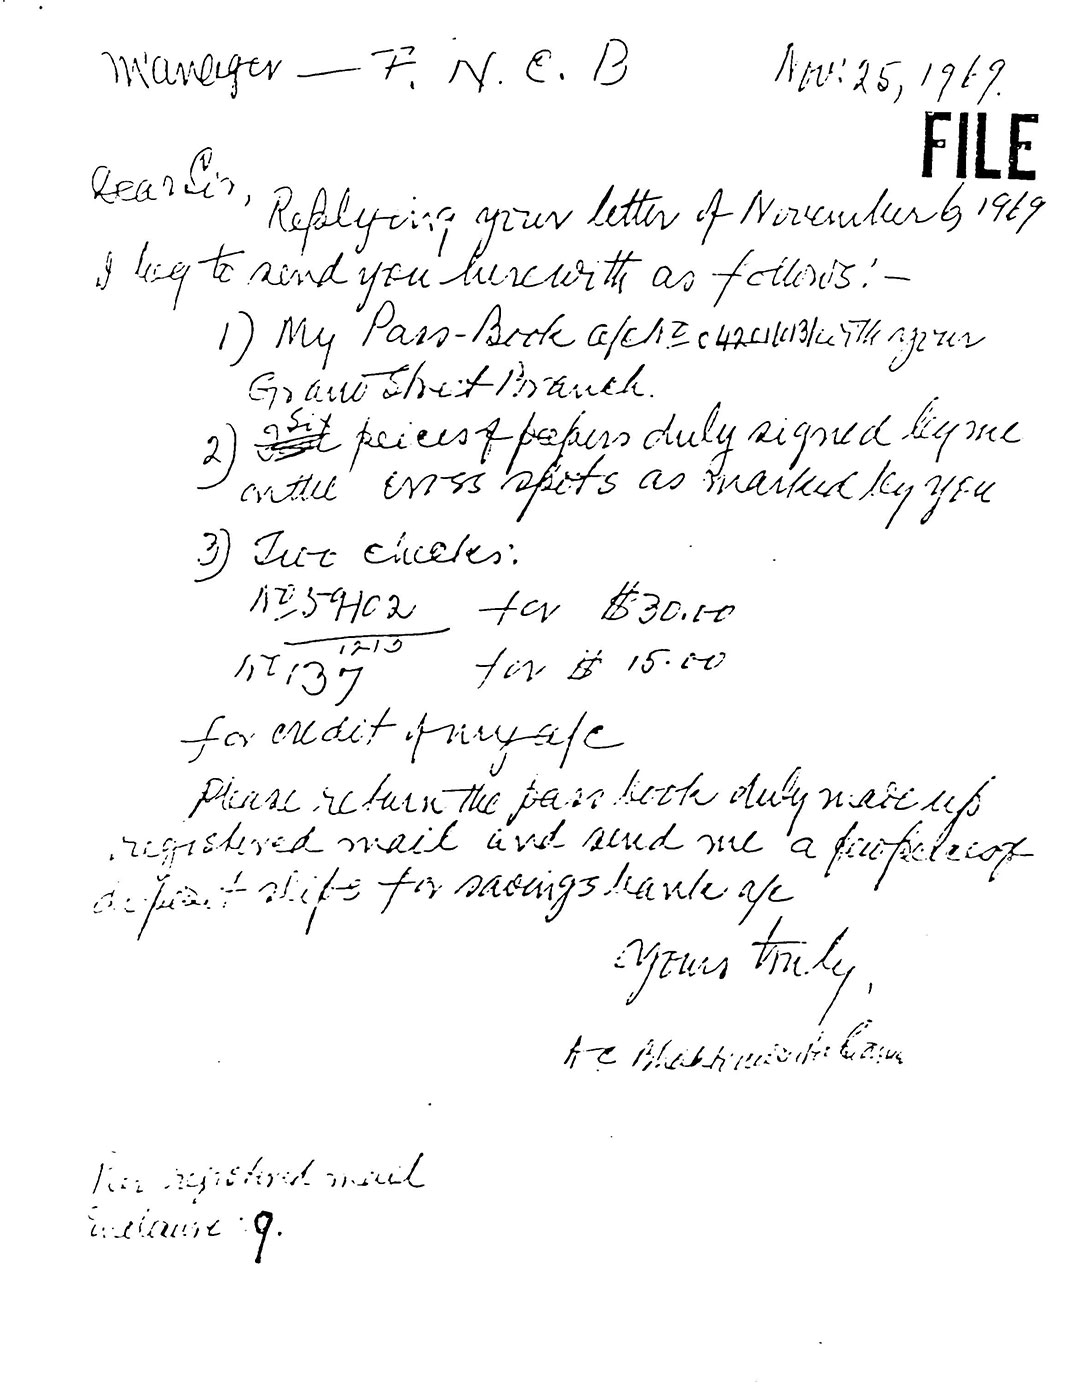 Manager — F. N. C. B
Nov: 25, 1969.
FILE
Dear Sir,
Replying your letter of November 6, 1969
I beg to send you herewith as follows:—
1) My Pass-Book a/c No with your
Grand Street Branch.
2) Six peices of papers duly signed by me
on the cross spots as marked by you
3) Two checks:
No 59402 for $30.00
1213
No 137 for $ 15.00
for credit of my a/c
Please return the pass book duly made up
registered mail and send me a few pieces of
deposit slips for savings bank a/c
Yours truly,
A C Bhaktivedanta Swami
Per registered mail
Enclosure 9.